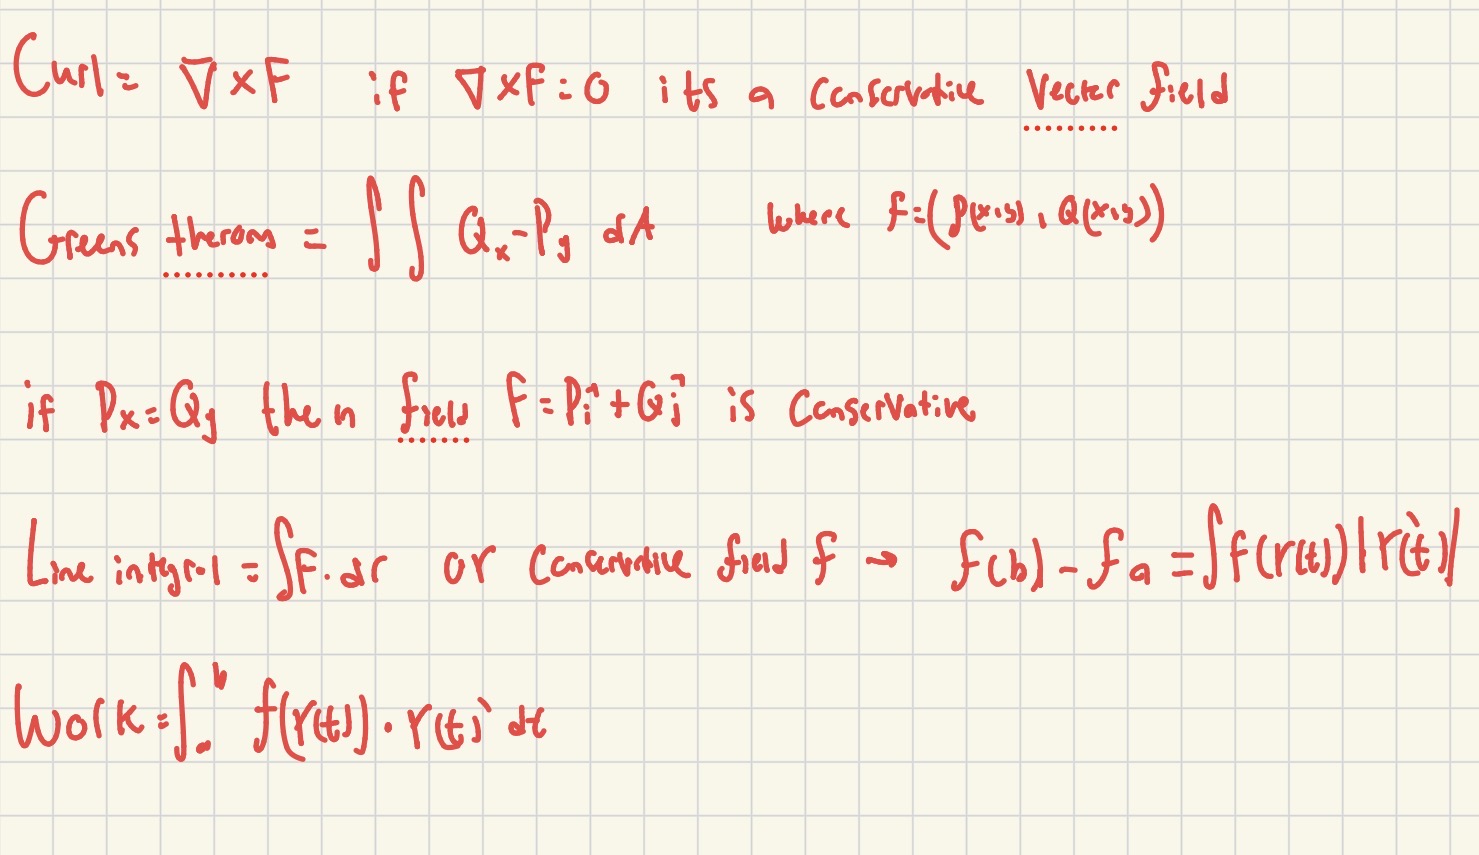 Curl = ∇ × F if ∇ × F = 0 its a conservative vector field
Greens therom = ∫∫ Qx - Py dA where F = (P(x,y), Q(x,y))
if Px = Qy then field F = Pî + Qĵ is conservative
Line integral = ∫F · dr or conservative field f → f(b) - fa = ∫f(r(t)) |r(t)'|
Work = ∫ₐᵇ f(r(t)) · r(t)' dt